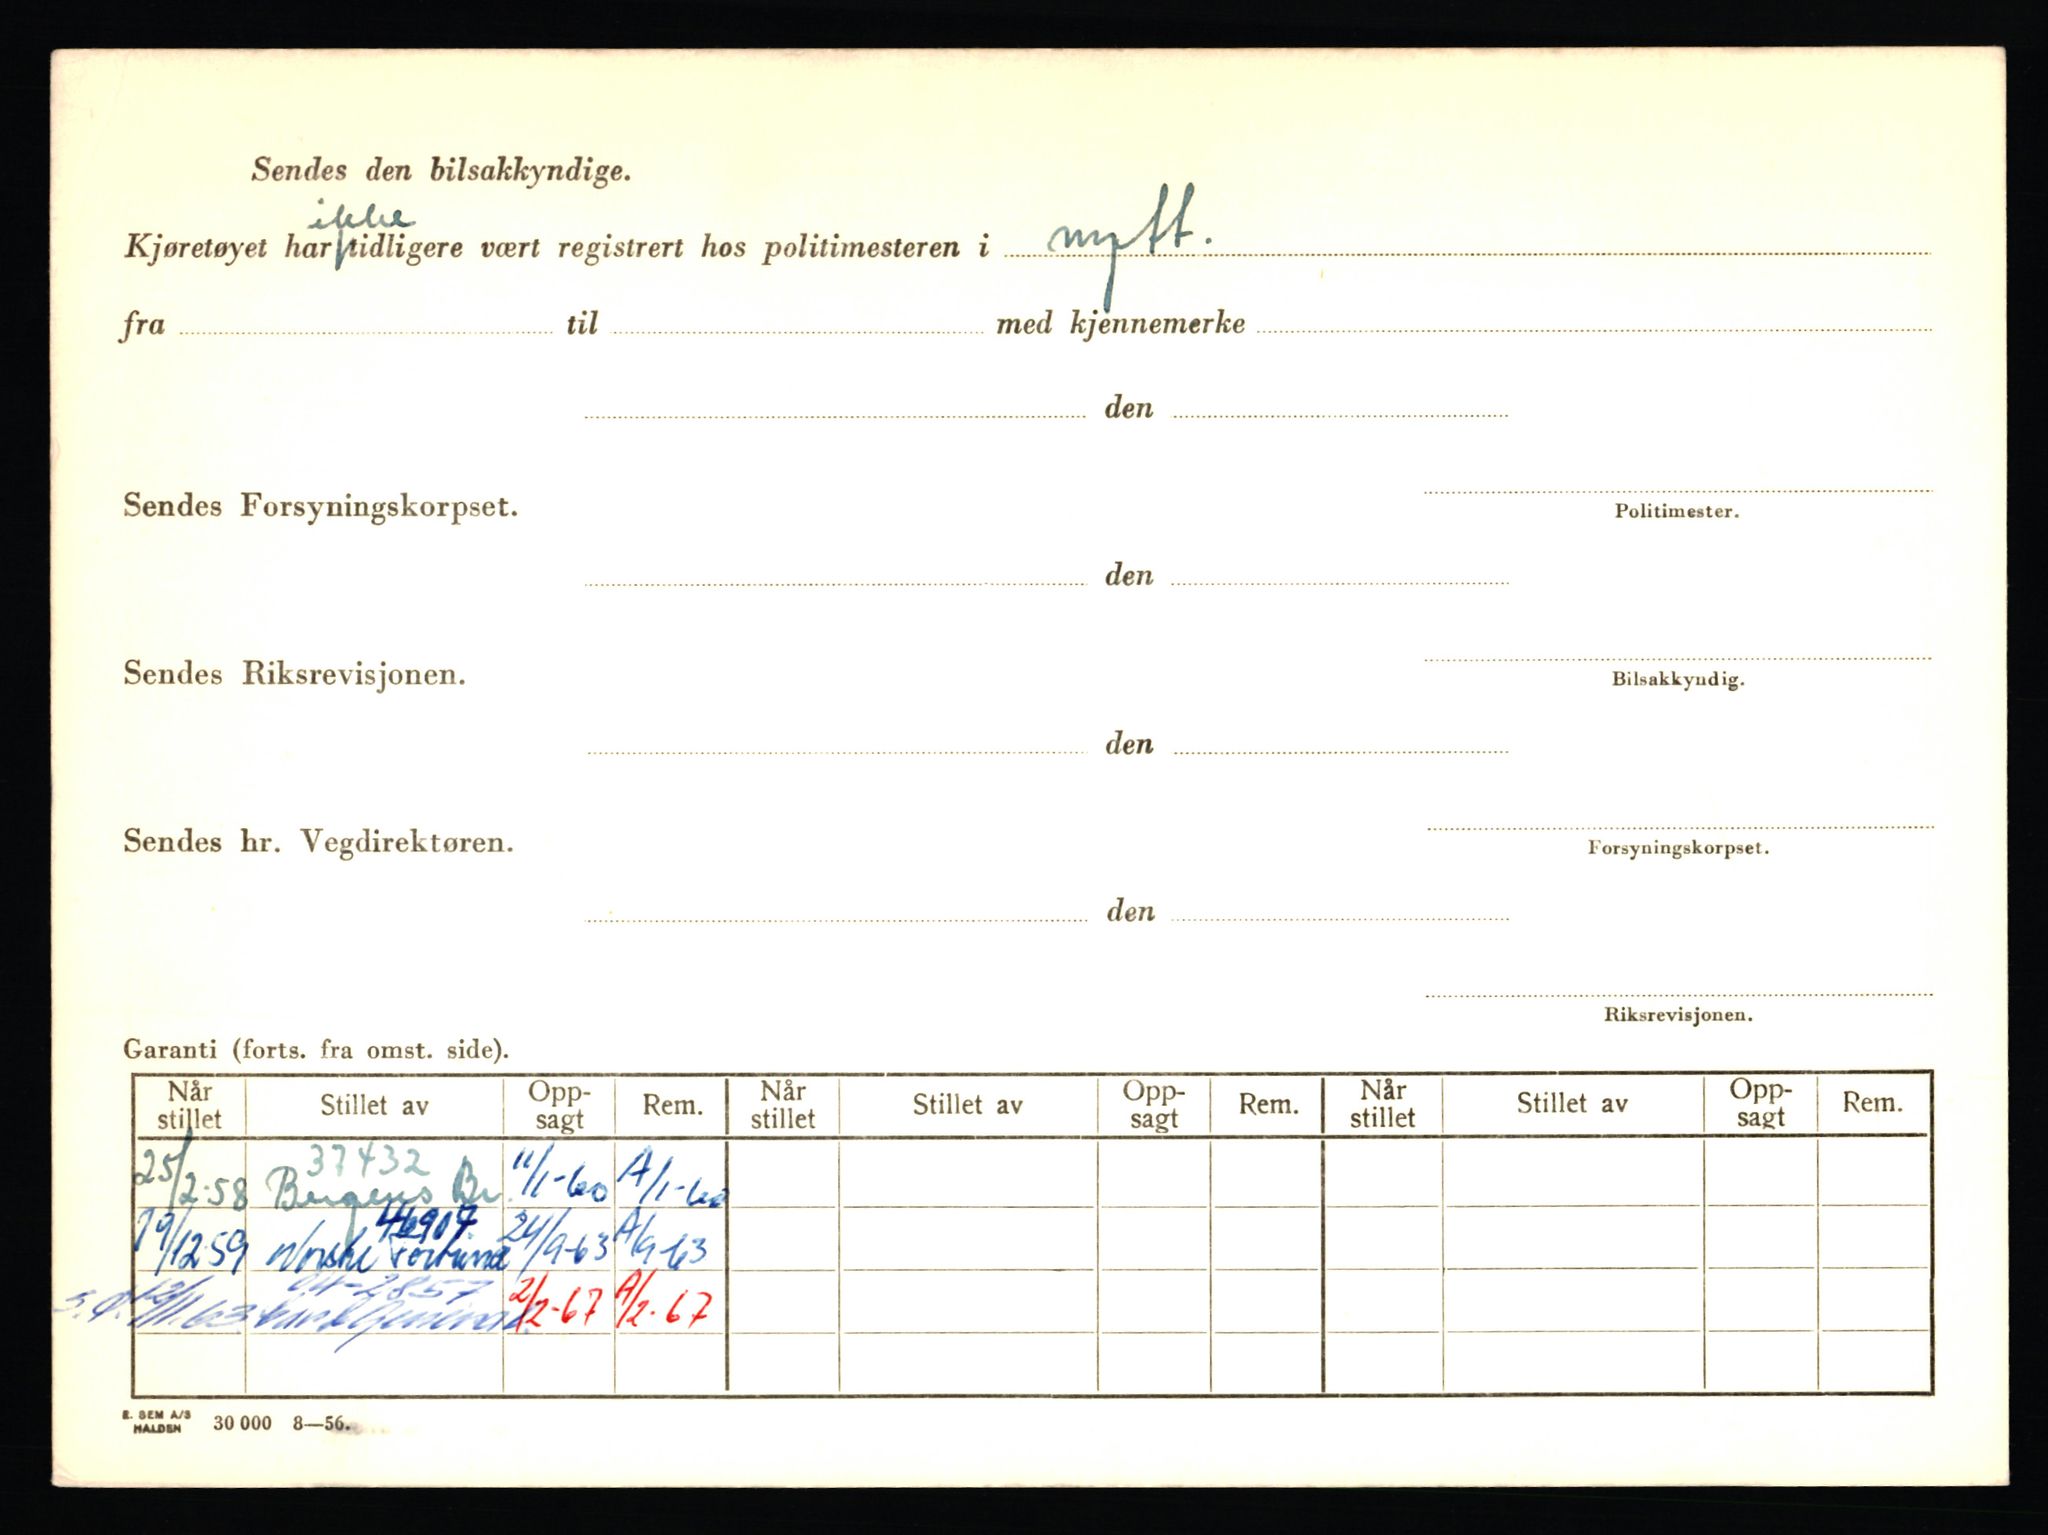 Sendes den bilsakkyndige.
ikke
Kjøretøyet har tidligere vært registrert hos politimesteren i nytt.
fra til med kjennemerke
den
Sendes Forsyningskorpset.
Politimester.
den
Sendes Riksrevisjonen.
Bilsakkyndig.
den
Sendes hr. Vegdirektøren.
Forsyningskorpset.
den
Riksrevisjonen.
Garanti (forts. fra omst. side).
Når stillet Stillet av Opp-sagt Rem. Når stillet Stillet av Opp-sagt Rem. Når stillet Stillet av Opp-sagt Rem.
37432
25/2-58 Bergens Br. 11/1-60 A/1-60
46907
19/12-59 Norske Fortuna 24/9-63 A/9-63
2857
2/2-67 A/2-67
E. SEM A/S
HALDEN 30 000 8—56.